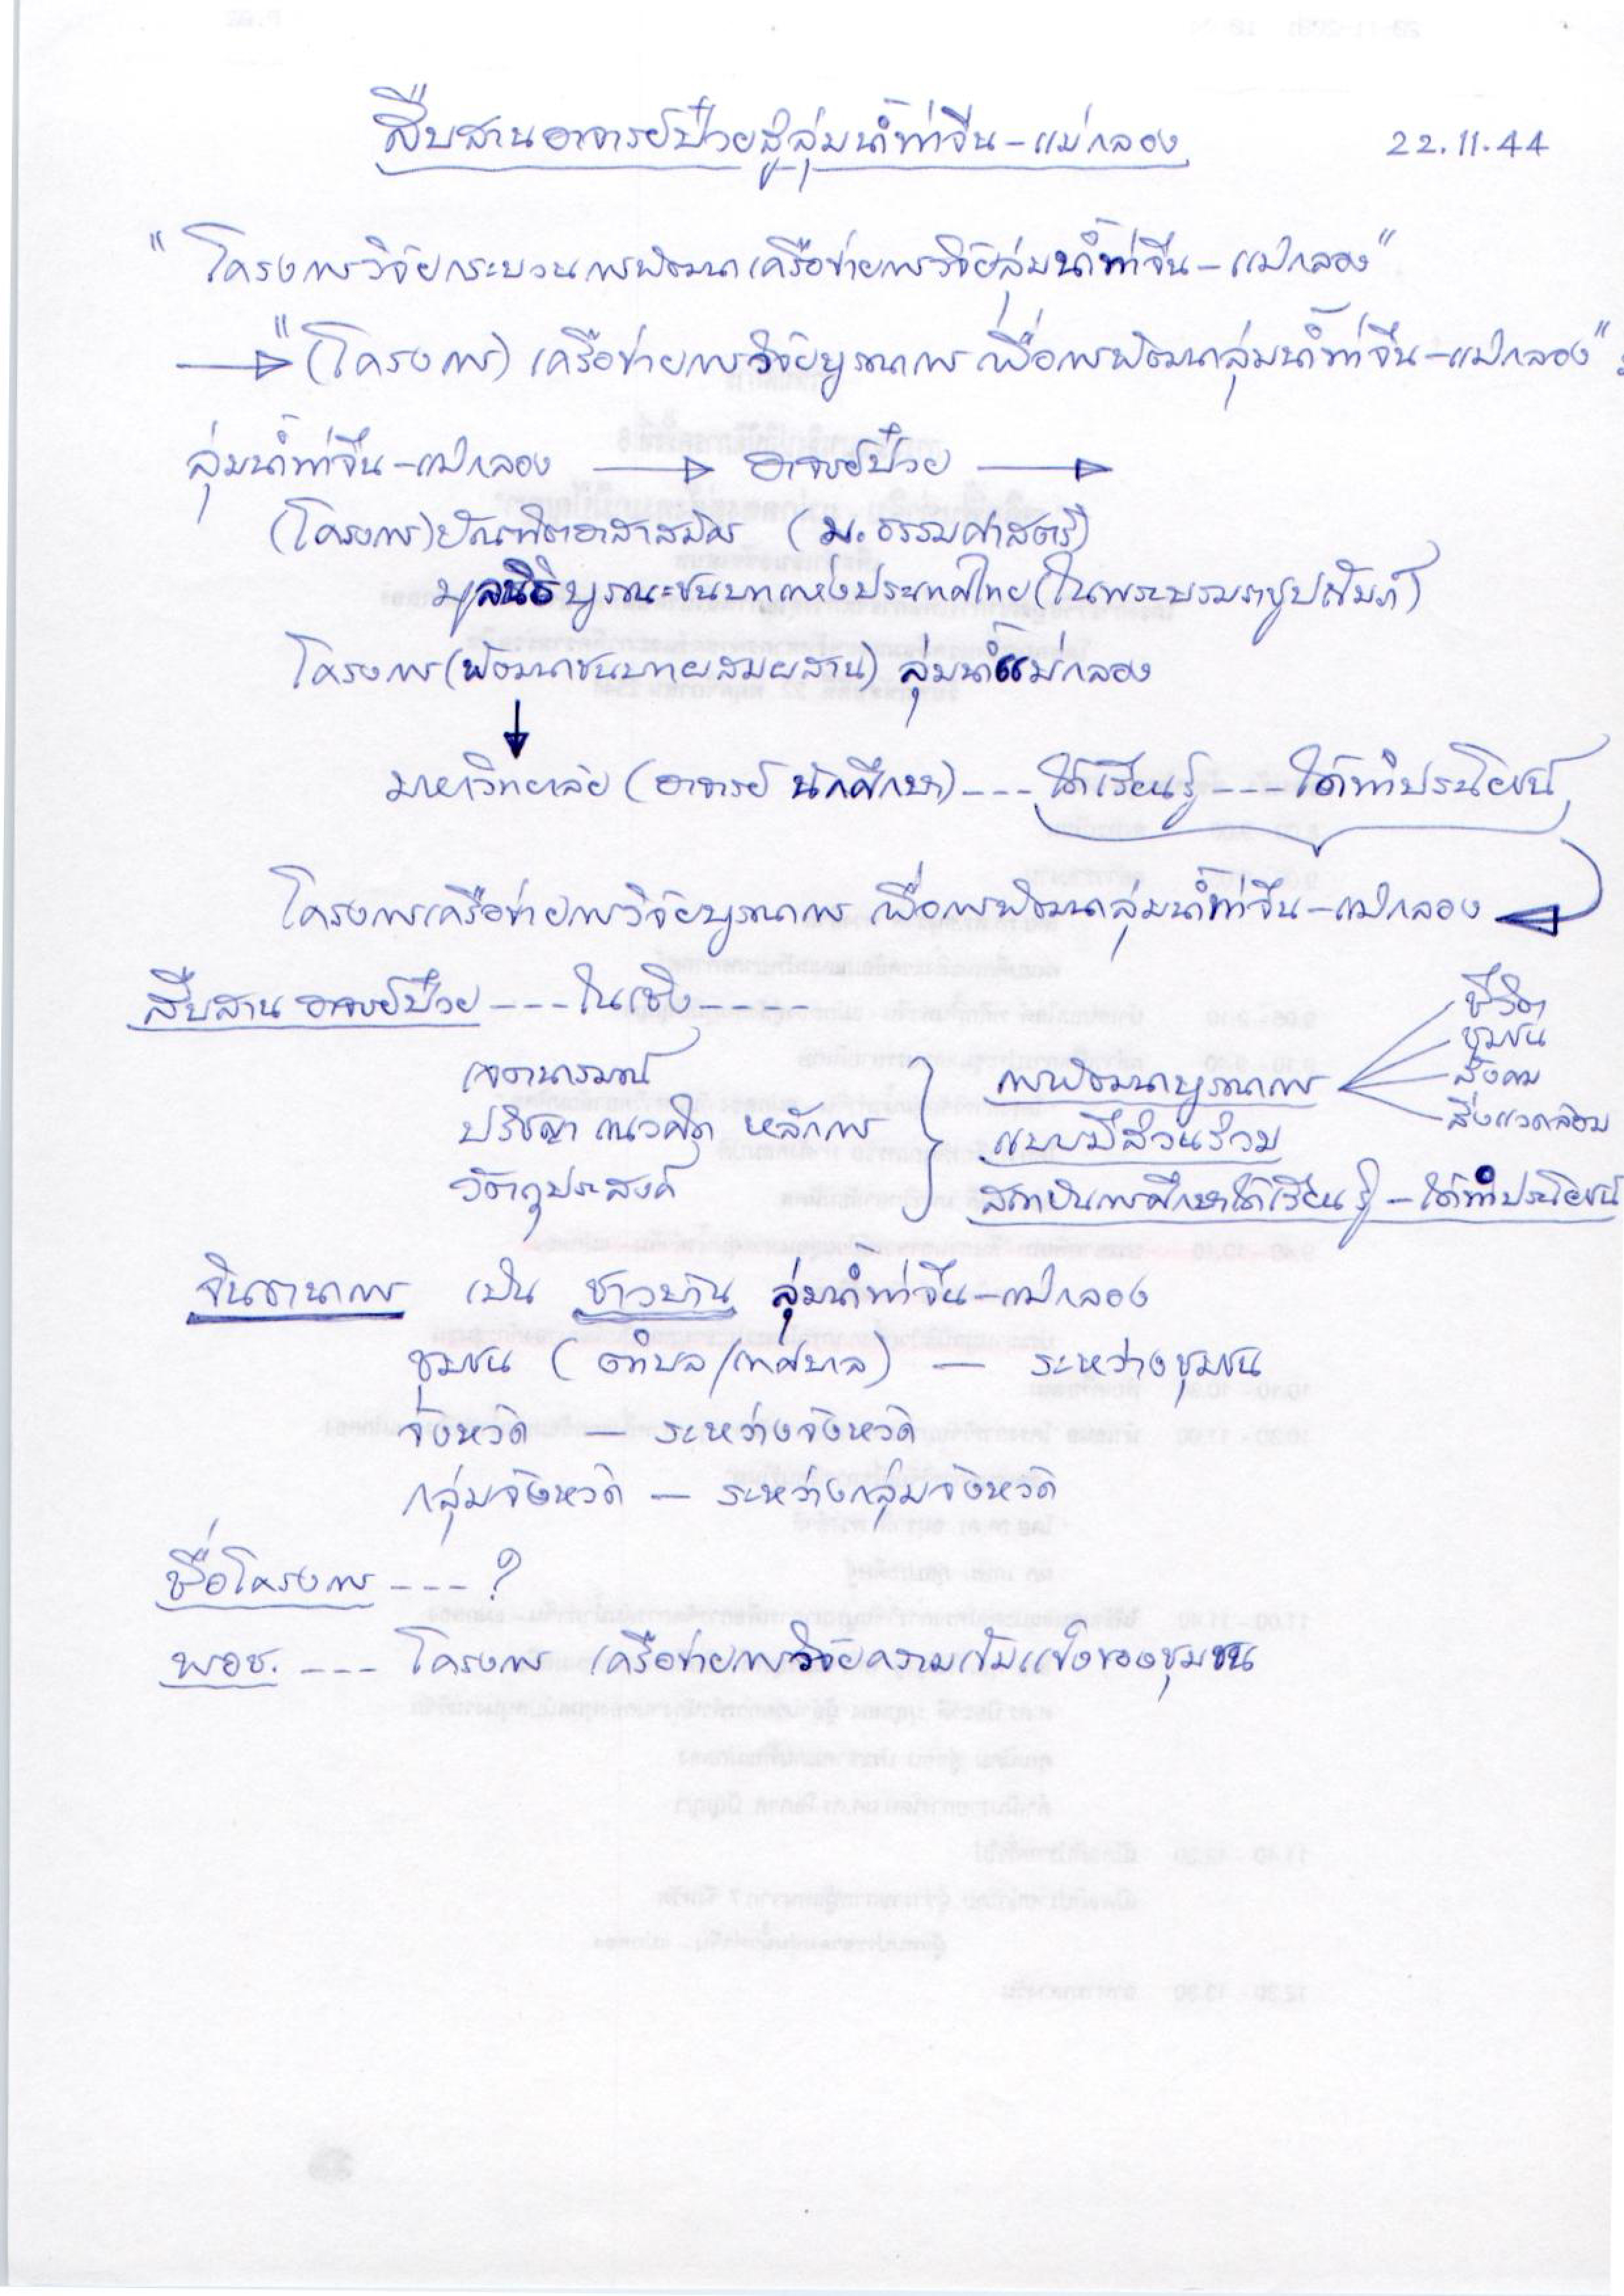 สืบสานอาจารย์ป๋วยสู่ลุ่มน้ำท่าจีน-แม่กลอง 22.11.44
"โครงการวิจัยกระบวนการพัฒนาเครือข่ายการวิจัยลุ่มน้ำท่าจีน-แม่กลอง"
→ "(โครงการ) เครือข่ายการวิจัยบูรณาการ เพื่อการพัฒนาลุ่มน้ำท่าจีน-แม่กลอง"
ลุ่มน้ำท่าจีน-แม่กลอง → อาจารย์ป๋วย →
(โครงการ)บัณฑิตอาสาสมัคร (ม.ธรรมศาสตร์)
มูลนิธิบูรณะชนบทแห่งประเทศไทย(ในพระบรมราชูปถัมภ์)
โครงการ(พัฒนาชนบทผสมผสาน) ลุ่มน้ำแม่กลอง
↓
มหาวิทยาลัย (อาจารย์ นักศึกษา)---ได้เรียนรู้---ได้ทำประโยชน์
โครงการเครือข่ายการวิจัยบูรณาการ เพื่อการพัฒนาลุ่มน้ำท่าจีน-แม่กลอง
สืบสาน อาจารย์ป๋วย ---ในเชิง----
เจตนารมณ์
ปรัชญา แนวคิด หลักการ
วัตถุประสงค์
การพัฒนาบูรณาการ
แบบมีส่วนร่วม
สถาบันการศึกษาได้เรียนรู้-ได้ทำประโยชน์
ชีวิต
ชุมชน
สังคม
สิ่งแวดล้อม
จินตนาการ เป็น ชาวบ้าน ลุ่มน้ำท่าจีน-แม่กลอง
ชุมชน (ตำบล/เทศบาล) — ระหว่างชุมชน
จังหวัด — ระหว่างจังหวัด
กลุ่มจังหวัด — ระหว่างกลุ่มจังหวัด
ชื่อโครงการ ---?
พอช. --- โครงการ เครือข่ายการวิจัยความเข้มแข็งของชุมชน